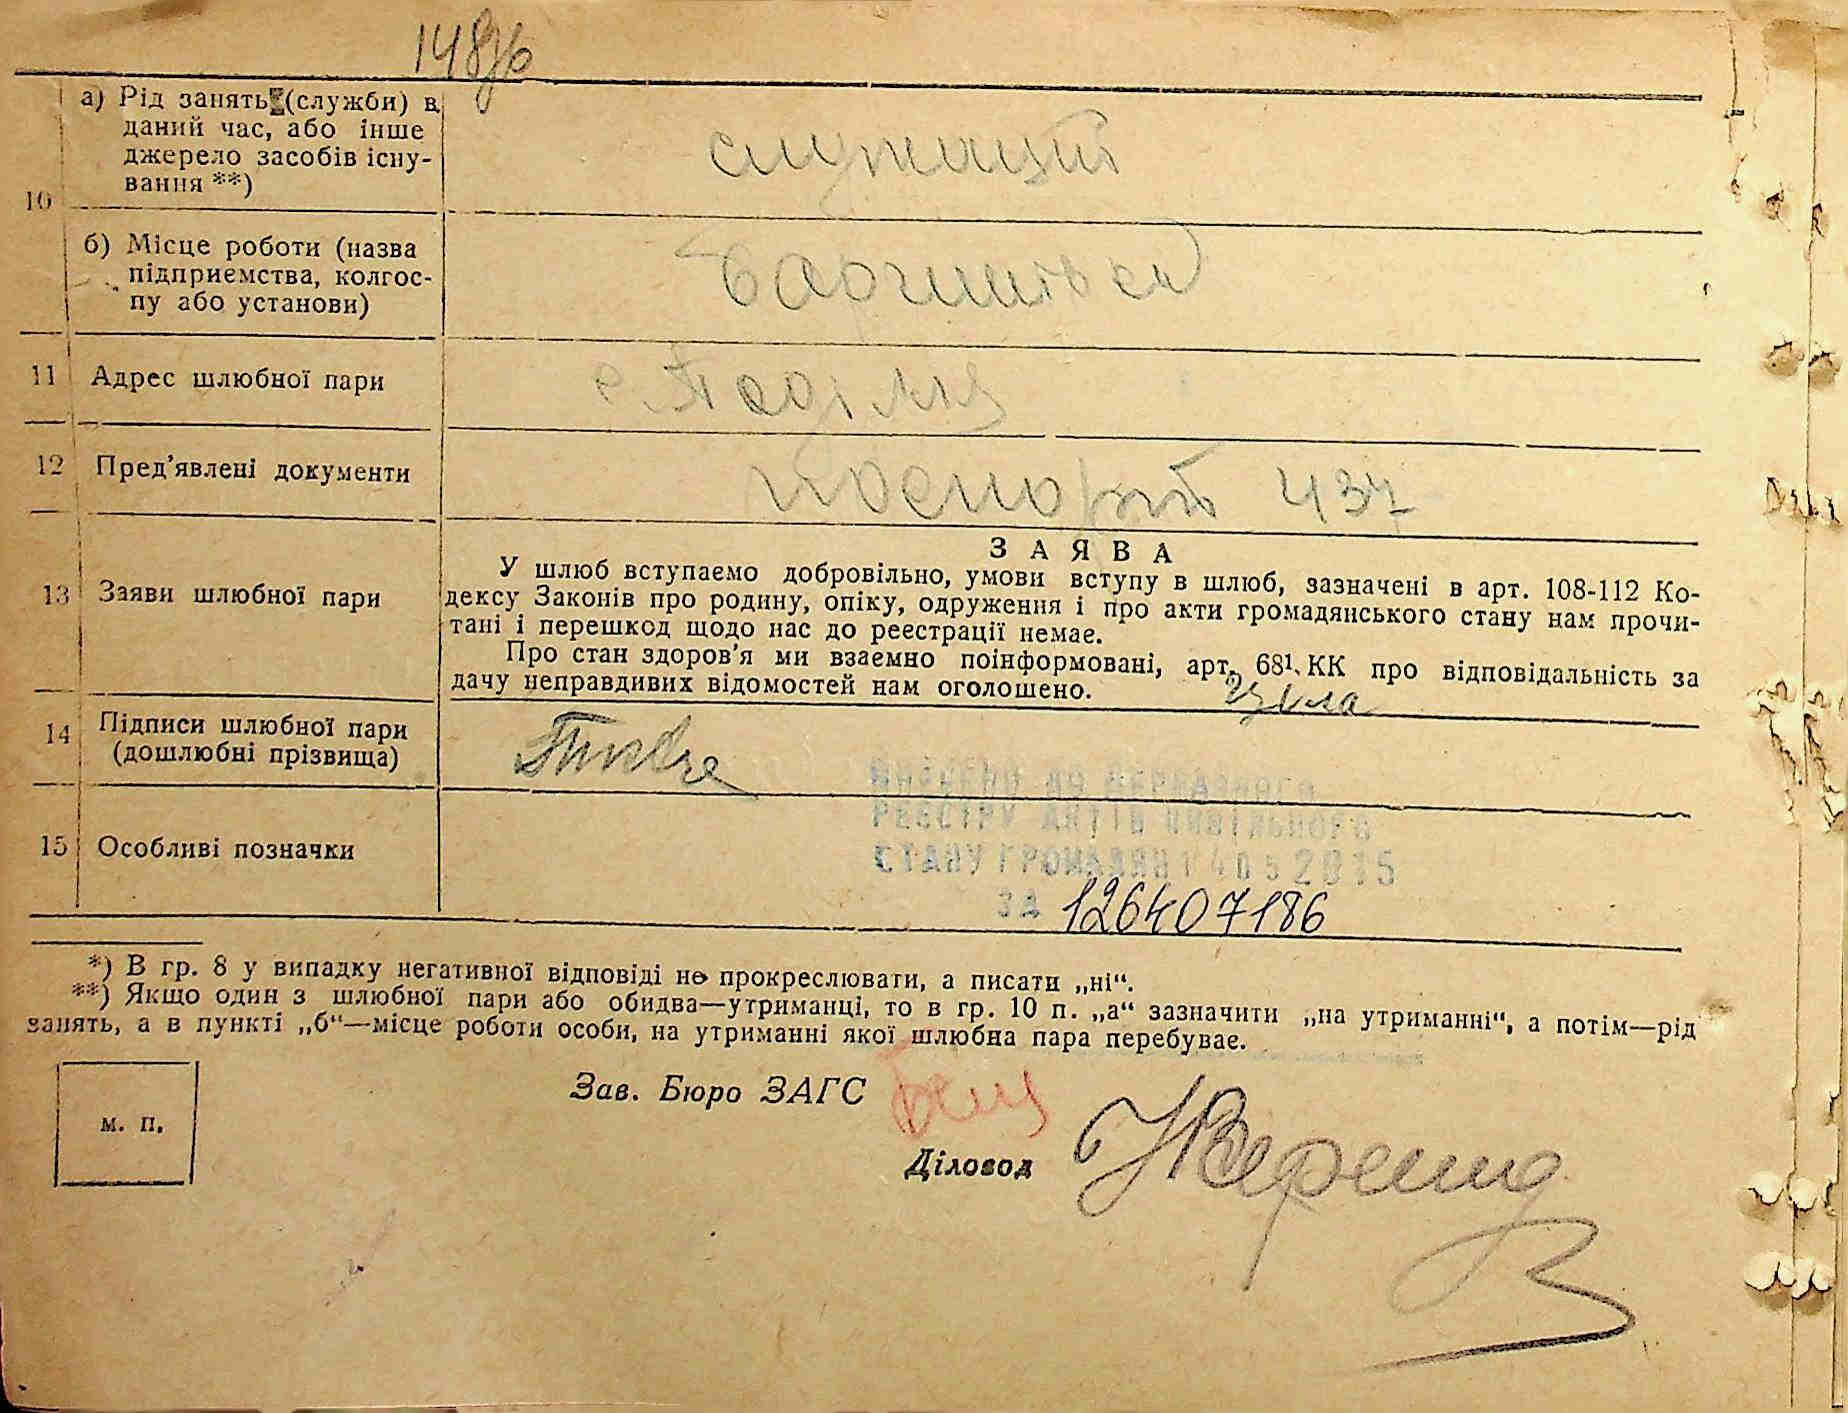 148
10
а) Рід занять (служби) в
даний час, або інше
джерело засобів існу-
вання **)
служащий
б) Місце роботи (назва
підприємства, колгос-
пу або установи)
11 Адрес шлюбної пари
с.
12 Пред'явлені документи
паспорт 437
13 Заяви шлюбної пари
ЗАЯВА
У шлюб вступаемо добровільно, умови вступу в шлюб, зазначені в арт. 108-112 Ко-
дексу Законів про родину, опіку, одруження і про акти громадянського стану нам прочи-
тані і перешкод щодо нас до реестрації немає.
Про стан здоров'я ми взаемно поінформовані, арт. 68¹ КК про відповідальність за
дачу неправдивих відомостей нам оголошено.
14 Підписи шлюбної пари
(дошлюбні прізвища)
15 Особливі позначки
ВНЕСЕНО ДО ДЕРЖАВНОГО
РЕЄСТРУ АКТІВ ЦИВІЛЬНОГО
СТАНУ ГРОМАДЯН 14 05 2015
ЗА 126407186
*) В гр. 8 у випадку негативної відповіді не прокреслювати, а писати „ні“.
**) Якщо один з шлюбної пари або обидва—утриманці, то в гр. 10 п. „а“ зазначити „на утриманні“, а потім—рід
занять, а в пункті „б“—місце роботи особи, на утриманні якої шлюбна пара перебуває.
м. п.
Зав. Бюро ЗАГС
Діловод